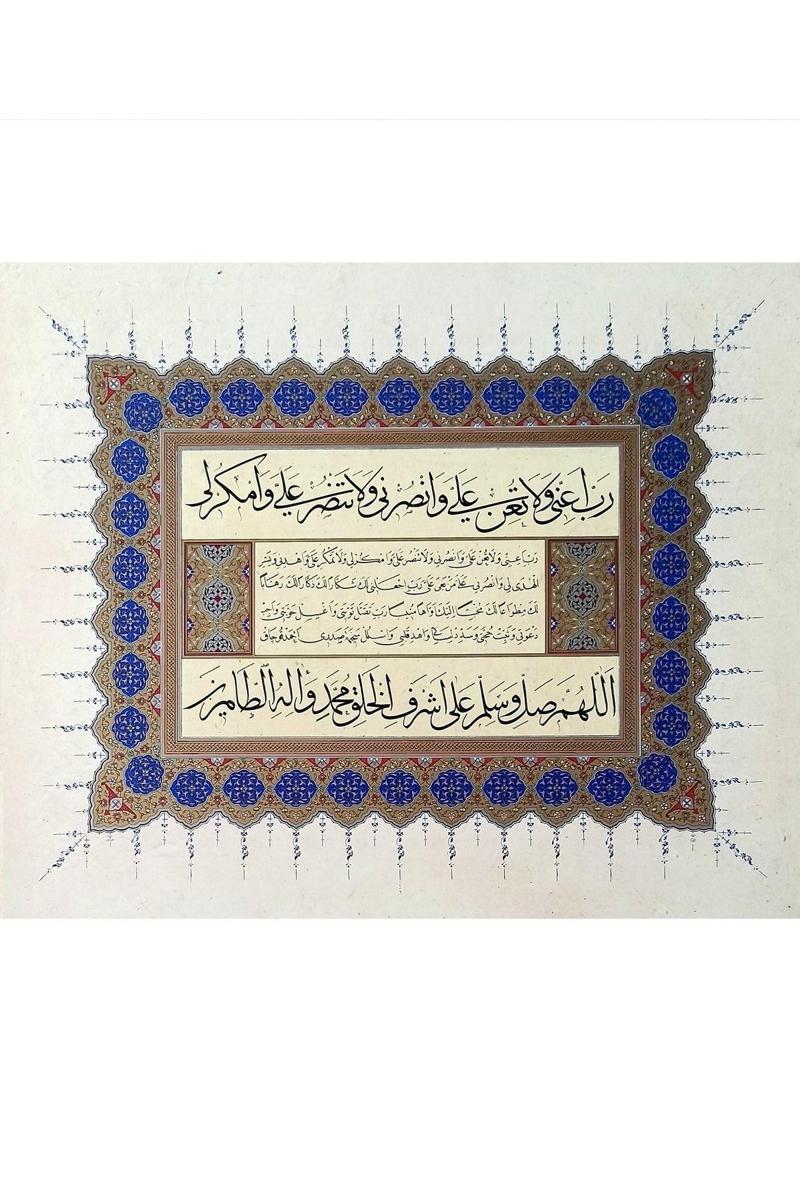 رَبِّ أَعِنِّي وَلَا تُعِنْ عَلَيَّ وَانْصُرْنِي وَلَا تَنْصُرْ عَلَيَّ وَامْكُرْ لِي
رَبِّ أَعِنِّي وَلَا تُعِنْ عَلَيَّ وَانْصُرْنِي وَلَا تَنْصُرْ عَلَيَّ وَامْكُرْ لِي وَلَا تَمْكُرْ عَلَيَّ وَاهْدِنِي وَيَسِّرِ
الْهُدَى لِي وَانْصُرْنِي عَلَى مَنْ بَغَى عَلَيَّ رَبِّ اجْعَلْنِي لَكَ شَكَّارًا لَكَ ذَكَّارًا لَكَ رَهَّابًا
لَكَ مِطْوَاعًا لَكَ مُخْبِتًا إِلَيْكَ أَوَّاهًا مُنِيبًا رَبِّ تَقَبَّلْ تَوْبَتِي وَاغْسِلْ حَوْبَتِي وَأَجِبْ
دَعْوَتِي وَثَبِّتْ حُجَّتِي وَسَدِّدْ لِسَانِي وَاهْدِ قَلْبِي وَاسْلُلْ سَخِيمَةَ صَدْرِي
اَللّٰهُمَّ صَلِّ وَسَلِّمْ عَلَى أَشْرَفِ الْخَلْقِ مُحَمَّدٍ وَآلِهِ الطَّاهِرِينَ